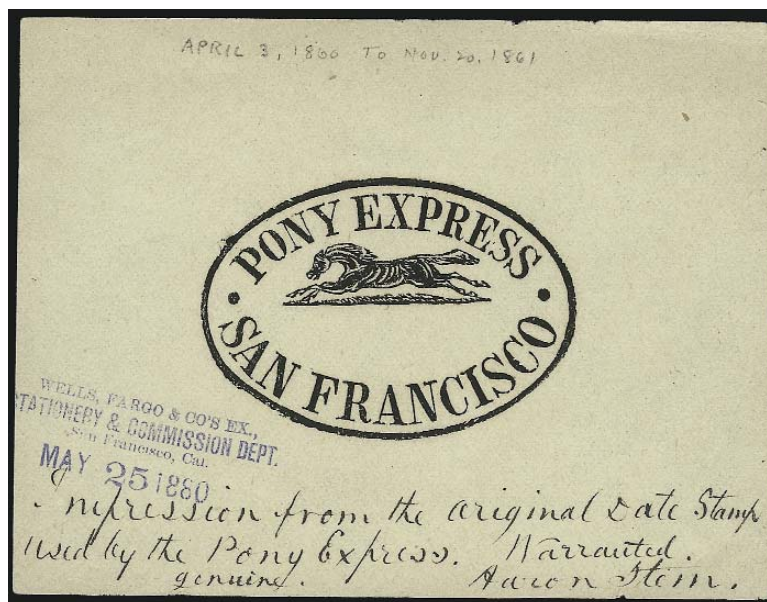 APRIL 3, 1860 TO NOV. 20, 1861
PONY EXPRESS
SAN FRANCISCO
WELLS, FARGO & CO'S EX.,
STATIONERY & COMMISSION DEPT.
San Francisco, Cal.
MAY 25 1880
Impression from the original Date Stamp
used by the Pony Express. Warranted.
genuine. Aaron Stein.